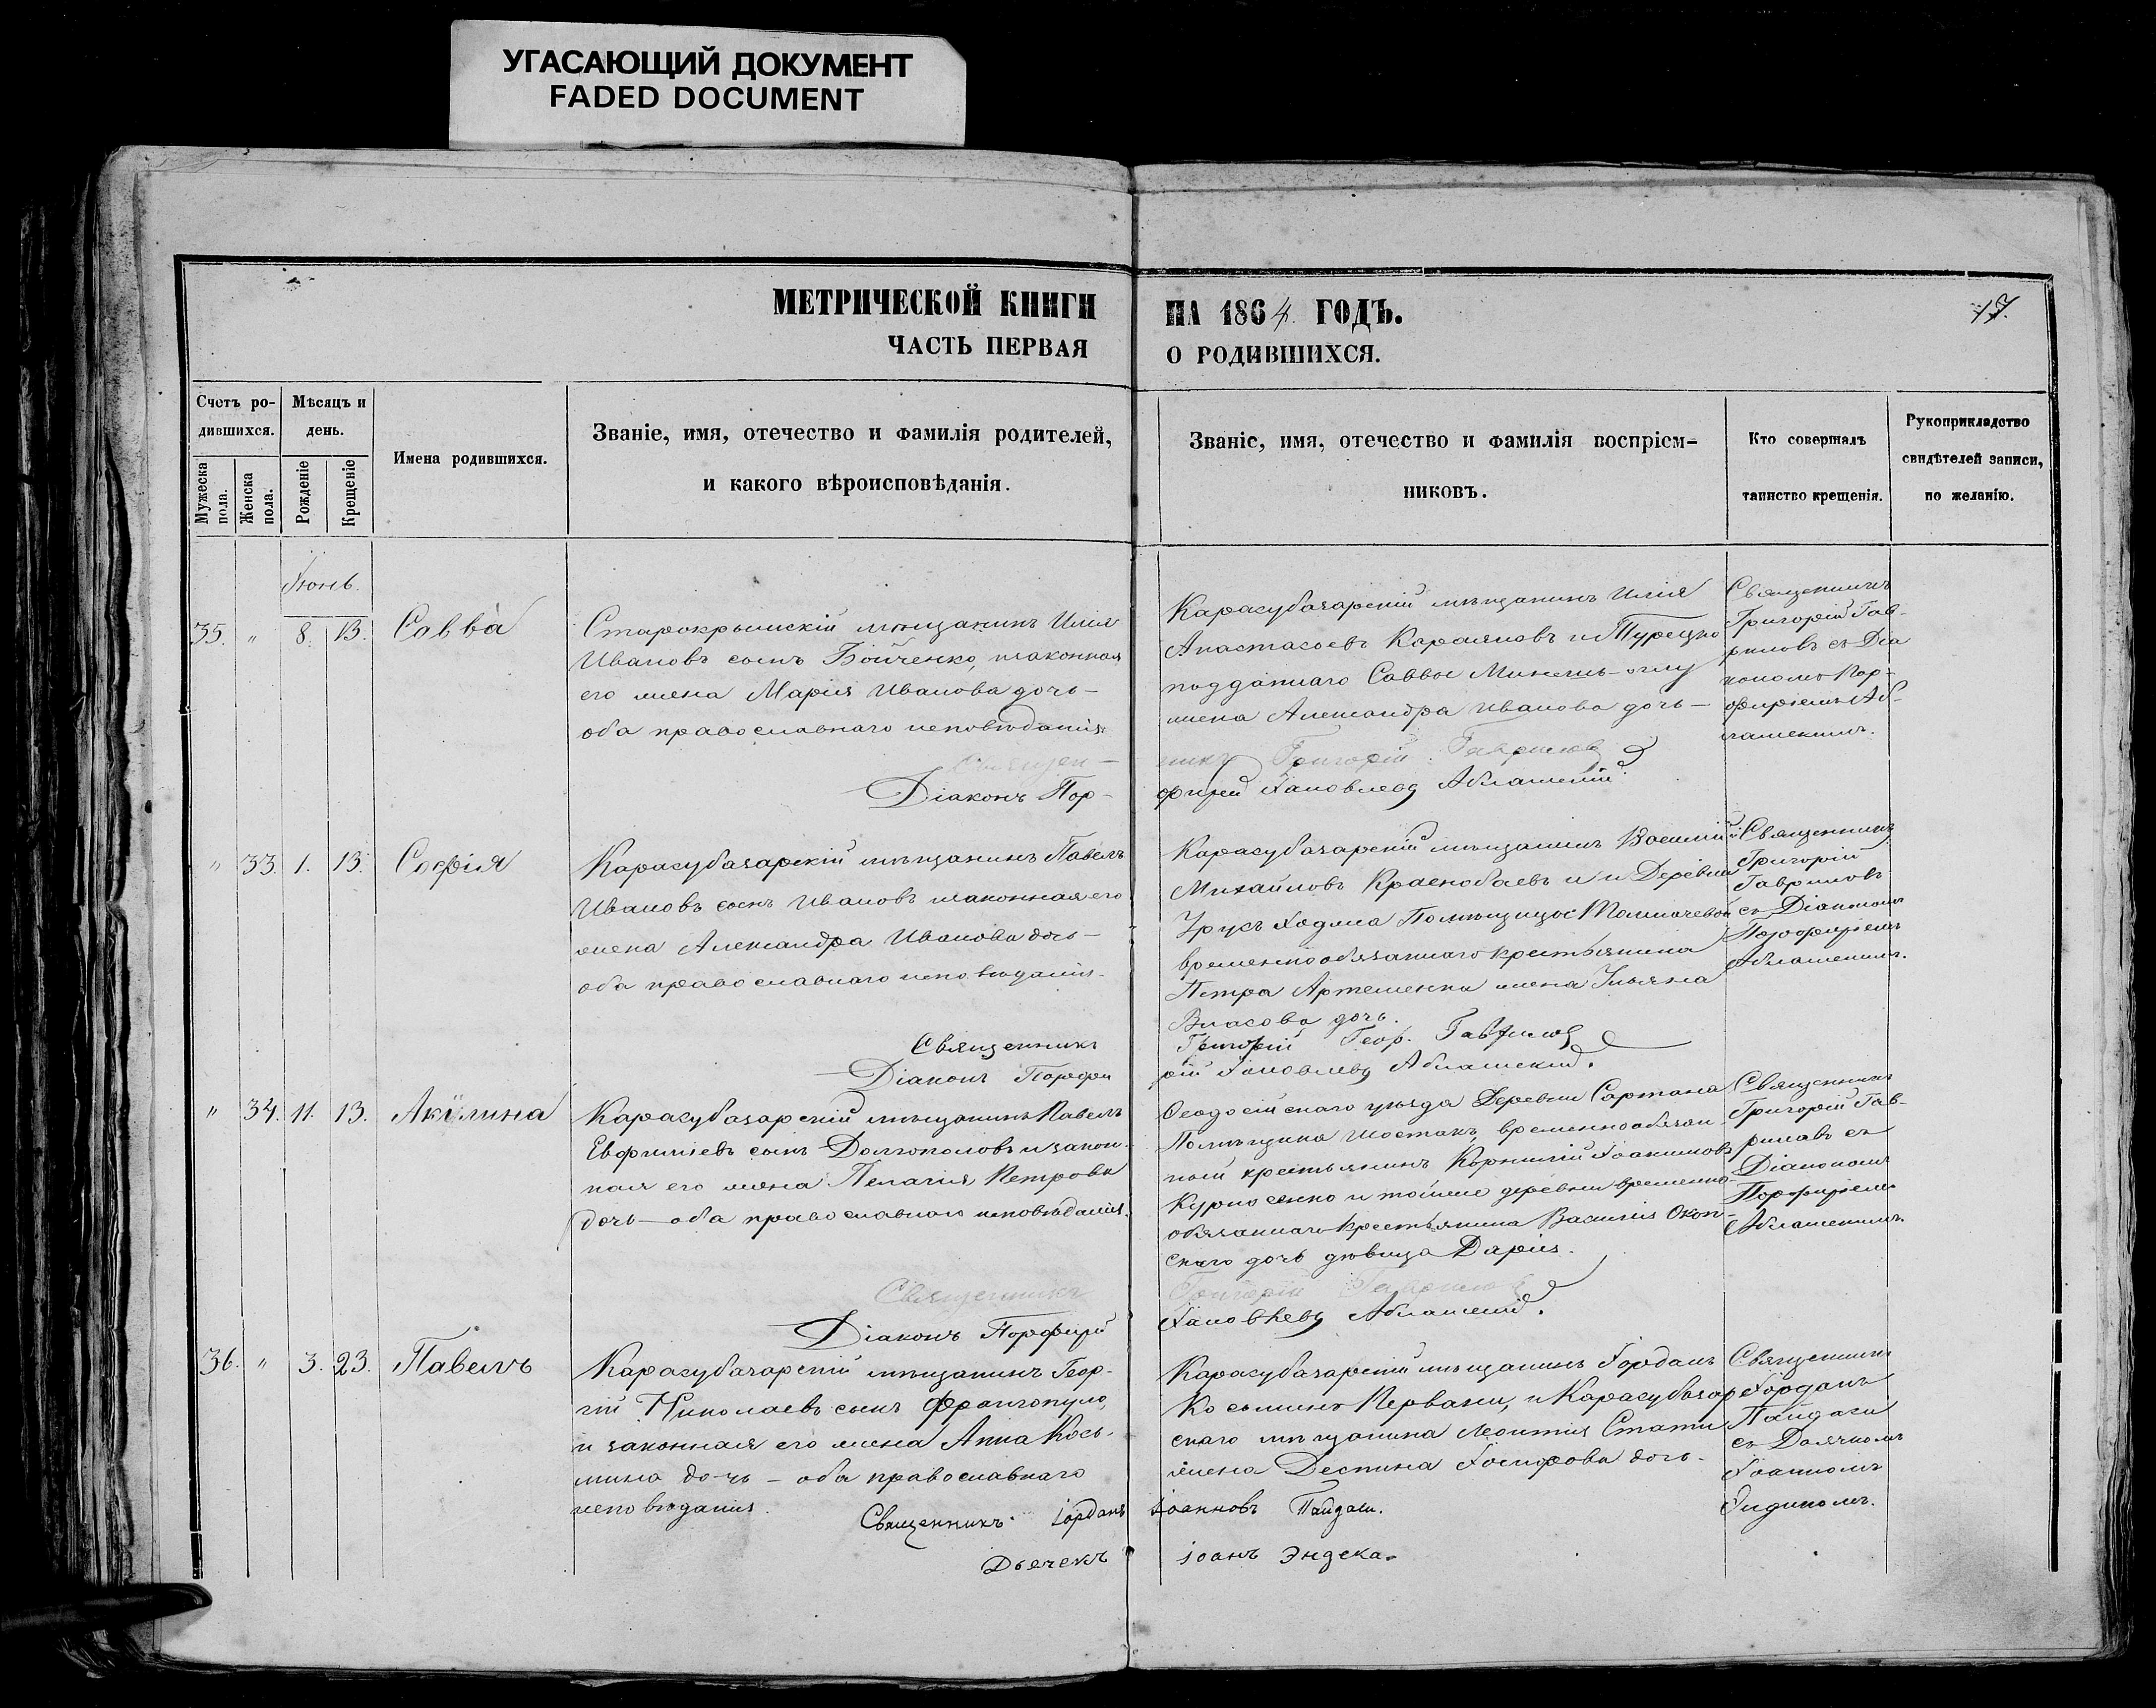 УГАСАЮЩИЙ ДОКУМЕНТ
FADED DOCUMENT
МЕТРИЧЕСКОЙ КНИГИ
НА 1864 ГОДЪ.
17.
ЧАСТЬ ПЕРВАЯ
О РОДИВШИХСЯ.
Счетъ ро-
дившихся.
Мужеска пола.
Женска пола.
Мѣсяцъ и
день.
Рожденіе
Крещеніе
Имена родившихся.
Званіе, имя, отечество и фамилія родителей,
и какого вѣроисповѣданія.
Званіе, имя, отечество и фамилія воспріем-
никовъ.
Кто совершалъ
таинство крещенія.
Рукоприкладство
свидѣтелей записи,
по желанію.
Іюнь.
35. " 8. 13. Савва
Старокрымскій мѣщанинъ Илія
Ивановъ сынъ Бойченко, и законная
его жена Марія Иванова дочь –
оба православнаго исповѣданія.
Карасубазарскій мѣщанинъ Илія
Анастасовъ Караяновъ и Турецко
подданнаго Саввы
жена Александра Иванова дочь –
Священникъ
Григорій Гав-
риловъ съ Діа
кономъ Пор-
фиріемъ Аб-
лашскимъ.
Священ-
никъ Григорій Гавриловъ
Діаконъ Пор-
фирій Іаковлевъ Аблашскій.
" 33. 1. 13. Софія
Карасубазарскій мѣщанинъ Павелъ
Ивановъ сынъ Ивановъ и законная его
жена Александра Иванова дочь –
оба православнаго исповѣданія.
Карасубазарскій мѣщанинъ Василій
Михайловъ Краснобаевъ и Деревни
Урусъ Ходжа Помѣщицы
временнообязаннаго крестьянина
Петра Артеменки жена Ульяна
Власова дочь.
Священникъ
Григорій
Гавриловъ
съ Діакономъ
Порфиріемъ
Аблашскимъ.
Священникъ
Григорій Геор. Гавриловъ
Діаконъ Порфи
рій Іаковлевъ Аблашскій.
" 34. 11. 13. Акѵлина
Карасубазарскій мѣщанинъ Павелъ
сынъ Долгополовъ и закон-
ная его жена Пелагія Петрова
дочь – оба православнаго исповѣданія.
Ѳеодосійскаго уѣзда Деревни Сартана
Помѣщика Шостакъ, временнообязан-
ный крестьянинъ Корнилій Іоакимовъ
Курносенко и тойже деревни временно-
обязаннаго крестьянина Василія Окон-
скаго дочь дѣвица Дарія.
Священникъ
Григорій Гав-
риловъ съ
Діакономъ
Порфиріемъ
Аблашскимъ.
Священникъ
Григорій Гавриловъ
Діаконъ Порфирій
Іаковлевъ Аблашскій.
36. " 3. 23. Павелъ
Карасубазарскій мѣщанинъ Геор-
гій Николаевъ сынъ Франгопуло,
и законная его жена Анна Кось-
мина дочь – оба православнаго
исповѣданія.
Карасубазарскій мѣщанинъ Іорданъ
Косьминъ и Карасубазар
скаго мѣщанина Леонтія Стати
жена Деспина Іосифова дочь.
Священникъ
Іорданъ
Пайдаси
съ Дьячкомъ
Іоанномъ
Священникъ Іорданъ
Іоанновъ Пайдаси.
Дьячекъ
Іоанъ Эндека.